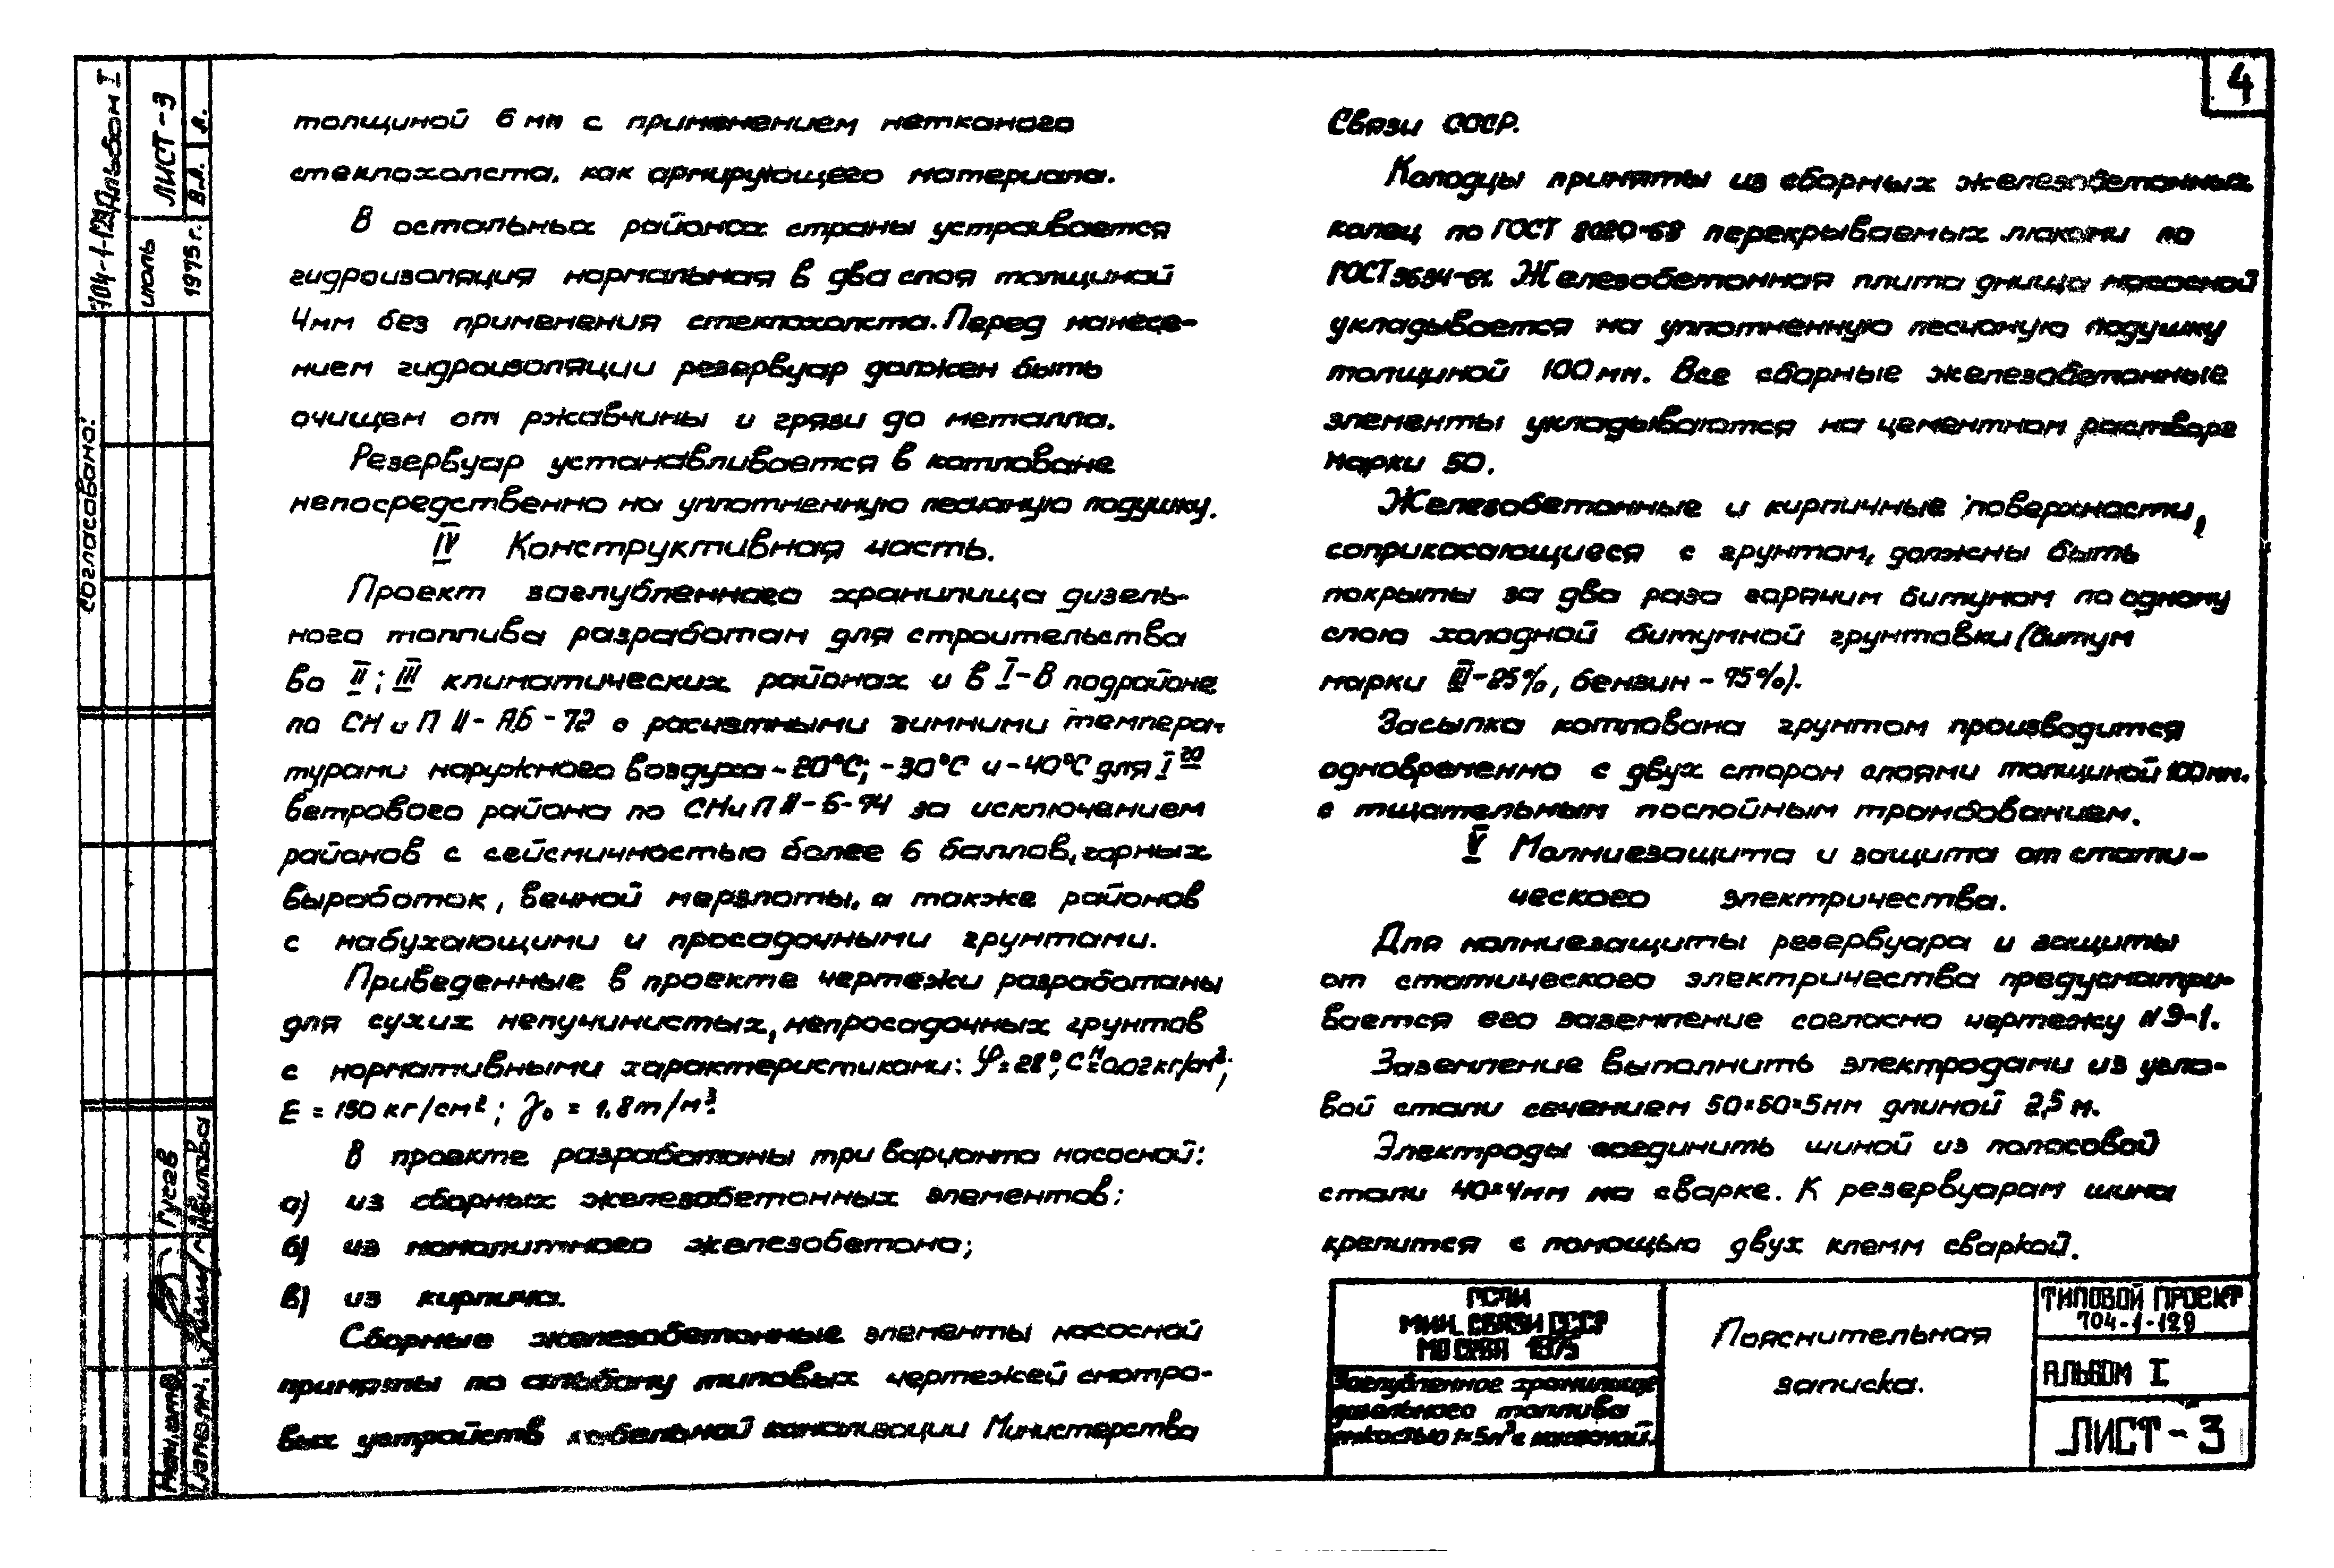 4
толщиной 6 мм с применением нетканого
стеклохолста, как армирующего материала.
В остальных районах страны устраивается
гидроизоляция нормальная в два слоя толщиной
4мм без применения стеклохолста. Перед нанесе-
нием гидроизоляции резервуар должен быть
очищен от ржавчины и грязи до металла.
Резервуар устанавливается в котловане
непосредственно на уплотненную песчаную подушку.
IV Конструктивная часть.
Проект заглубленного хранилища дизель-
ного топлива разработан для строительства
во II; III климатических районах и в I-В подрайоне
по СНиП II-А.6-72 с расчетными зимними темпера-
турами наружного воздуха -20°С; -30°С и -40°С для I го
ветрового района по СНиП II-6-74 за исключением
районов с сейсмичностью более 6 баллов, горных
выработок, вечной мерзлоты, а также районов
с набухающими и просадочными грунтами.
Приведенные в проекте чертежи разработаны
для сухих непучинистых, непросадочных грунтов
с нормативными характеристиками: φ=28°; Сн=0,02кг/см²;
E = 150 кг/см²; γ₀ = 1,8т/м³.
В проекте разработаны три варианта насосной:
а) из сборных железобетонных элементов;
б) из монолитного железобетона;
в) из кирпича.
Сборные железобетонные элементы насосной
приняты по альбому типовых чертежей смотро-
вых устройств кабельной канализации Министерства
Связи СССР.
Колодцы приняты из сборных железобетонных
колец по ГОСТ 8020-68 перекрываемых люками по
ГОСТ 3634-61. Железобетонная плита днища насосной
укладывается на уплотненную песчаную подушку
толщиной 100 мм. Все сборные железобетонные
элементы укладываются на цементном растворе
марки 50.
Железобетонные и кирпичные поверхности,
соприкасающиеся с грунтом, должны быть
покрыты за два раза горячим битумом по одному
слою холодной битумной грунтовки (битум
марки III-25%, бензин - 75%).
Засыпка котлована грунтом производится
одновременно с двух сторон слоями толщиной 100мм.
с тщательным послойным трамбованием.
V Молниезащита и защита от стати-
ческого электричества.
Для молниезащиты резервуара и защиты
от статического электричества предусматри-
вается его заземление согласно чертежу № Э-1.
Заземление выполнить электродами из угло-
вой стали сечением 50×50×5мм длиной 2,5 м.
Электроды соединить шиной из полосовой
стали 40×4мм на сварке. К резервуарам шина
крепится с помощью двух клемм сваркой.
ГСПИ
МИН. СВЯЗИ СССР
МОСКВА 1975
Заглубленное хранилище
дизельного топлива
емкостью 1×5м³ с насосной.
Пояснительная
записка.
ТИПОВОЙ ПРОЕКТ
704-1-129
АЛЬБОМ I
ЛИСТ-3
704-1-129 Альбом I
ЛИСТ-3
июль
1975 г.
согласовано:
Гусев
Нач. отд.